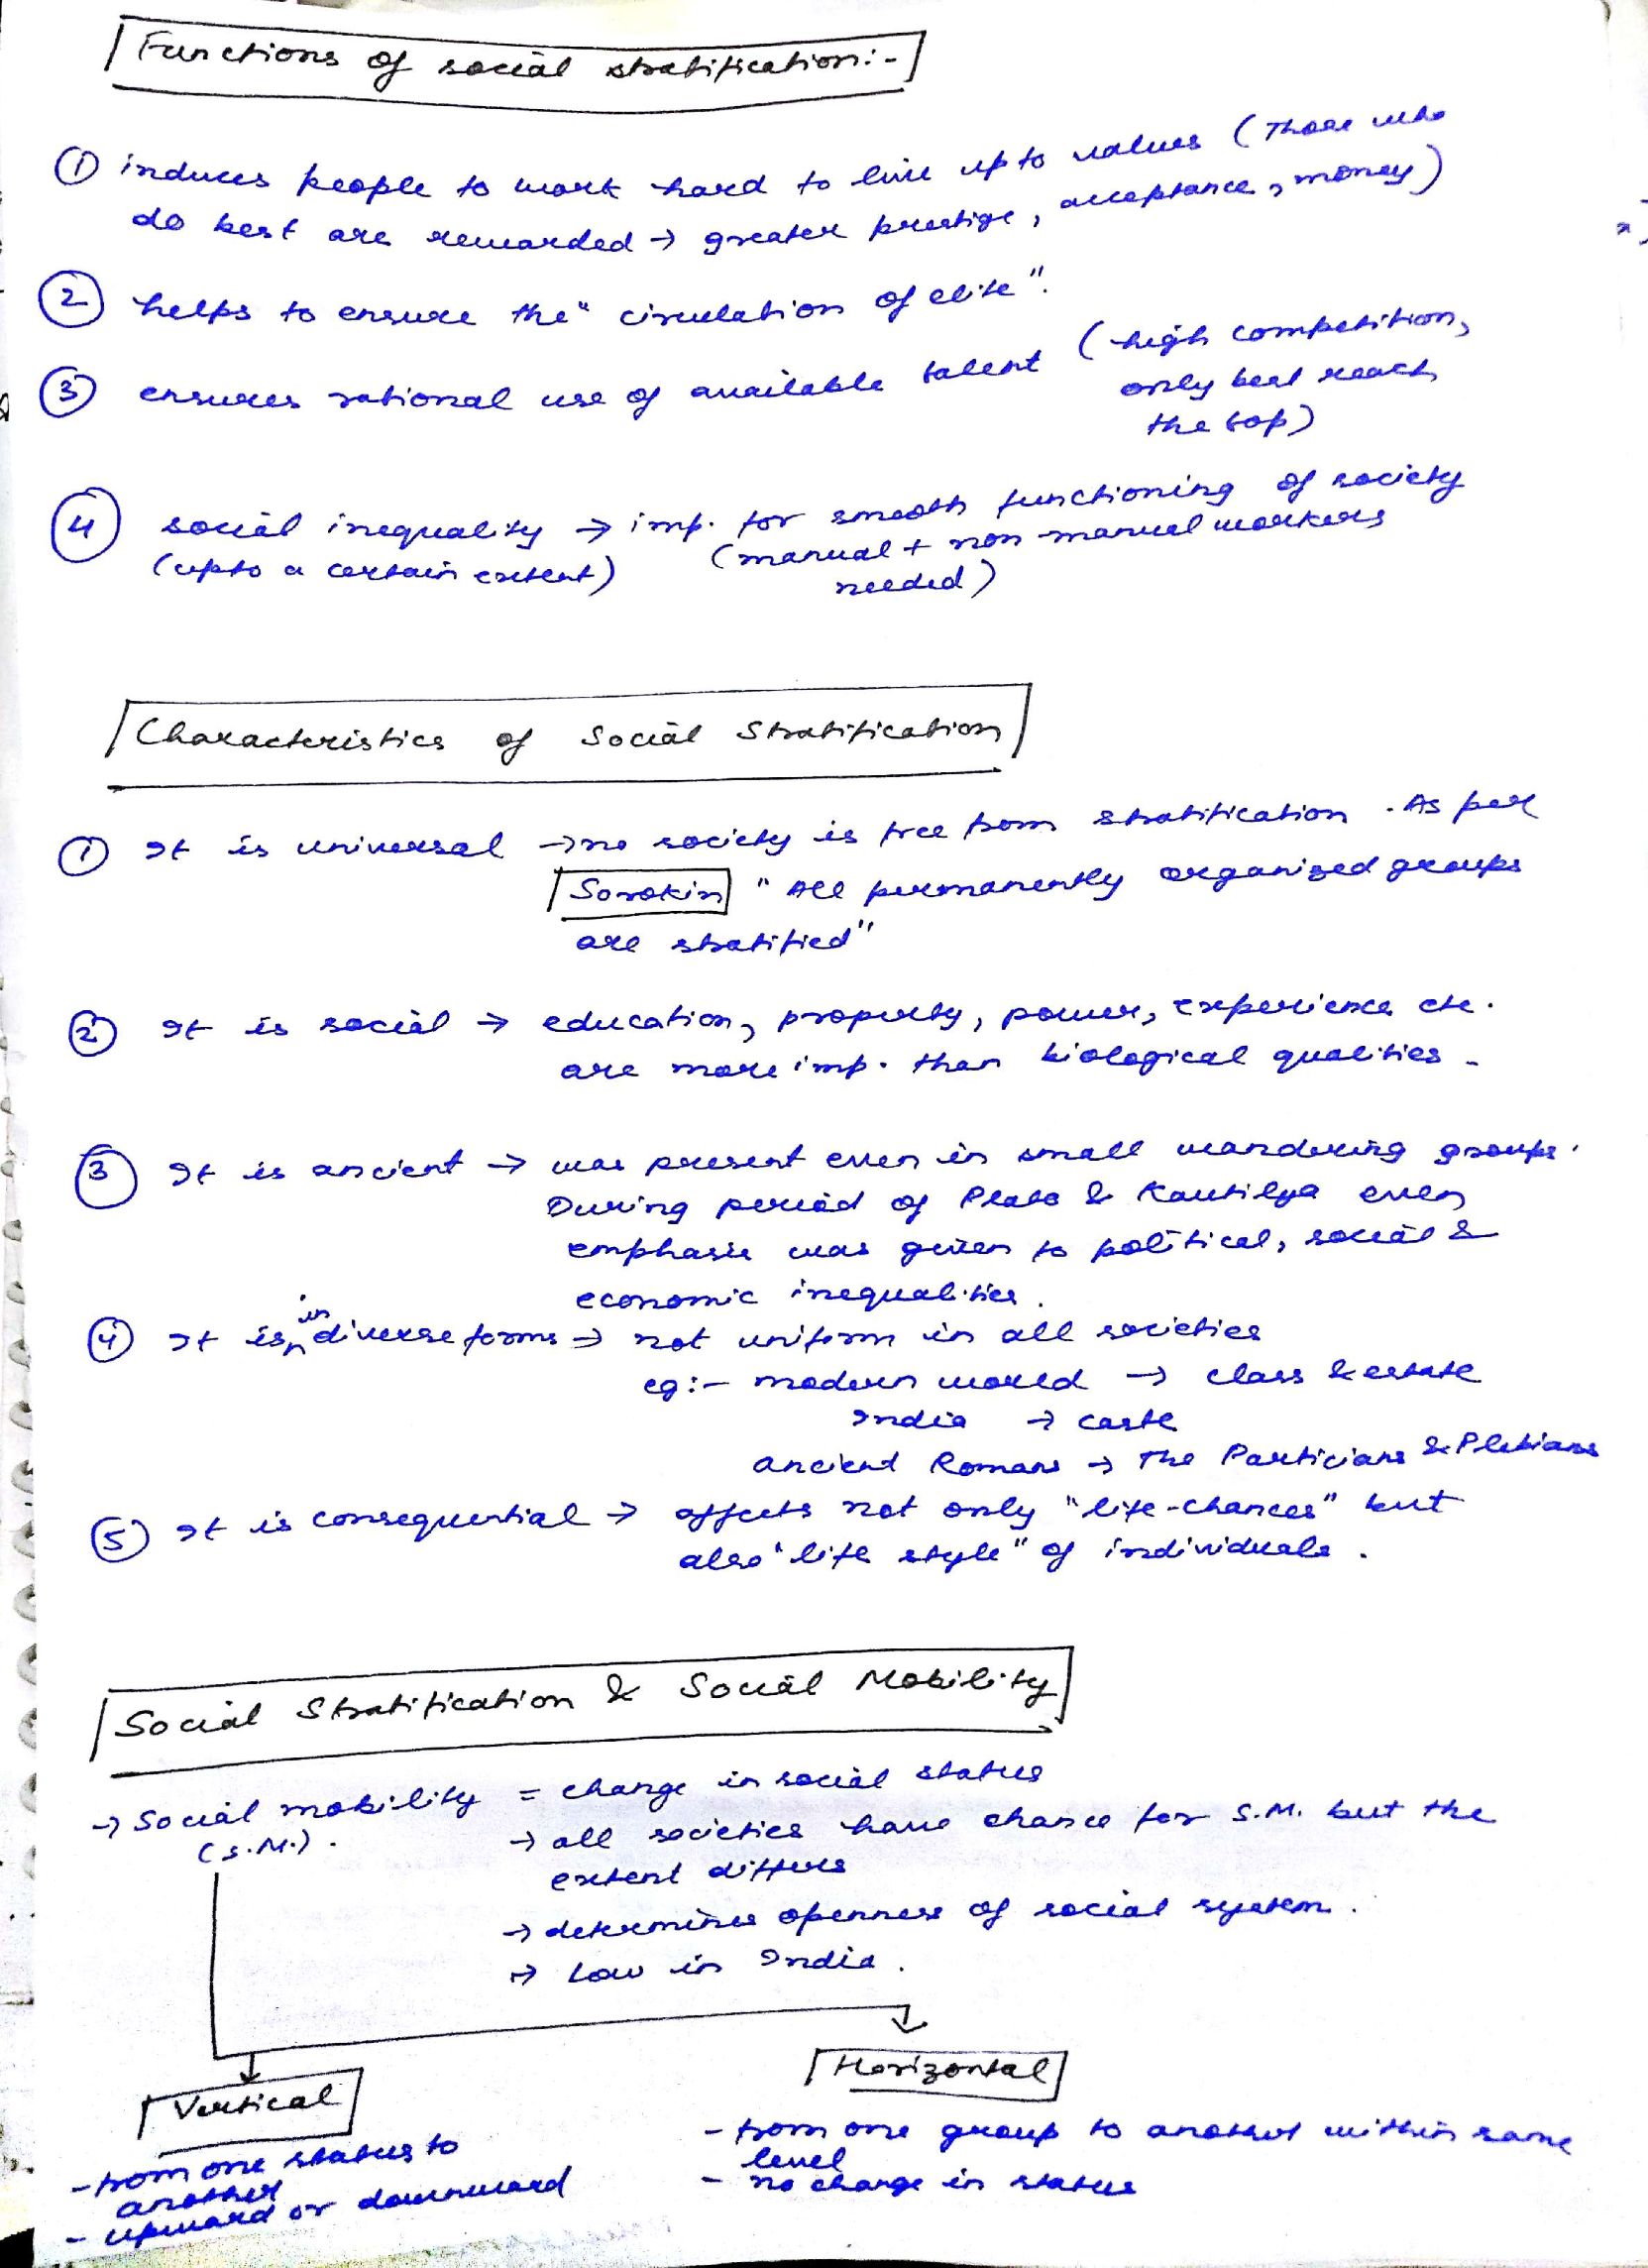 Functions of social stratification:-
① induces people to work hard to live up to values (Those who
do best are rewarded → greater prestige, acceptance, money)
② helps to ensure the "circulation of elite".
③ ensures rational use of available talent (high competition,
only best reach
the top)
④ social inequality → imp. for smooth functioning of society
(upto a certain extent) (manual + non-manual workers
needed)
Characteristics of Social Stratification
① It is universal → no society is free from stratification. As per
Sorokin "All permanently organized groups
are stratified"
② It is social → education, property, power, experience etc.
are more imp. than biological qualities.
③ It is ancient → was present even in small wandering groups.
During period of Plato & Kautilya even
emphasis was given to political, social &
economic inequalities.
④ It is in diverse forms → not uniform in all societies
eg:- modern world → class & estate
India → caste
Ancient Romans → The Particians & Plebians
⑤ It is consequential → affects not only "life-chances" but
also "life style" of individuals.
Social Stratification & Social Mobility
→ Social mobility = change in social status
(S.M.). → all societies have chance for S.M. but the
extent differs
→ determines openness of social system.
→ Low in India.
Vertical
- from one status to
another
- upward or downward
Horizontal
- from one group to another within same
level
- no change in status